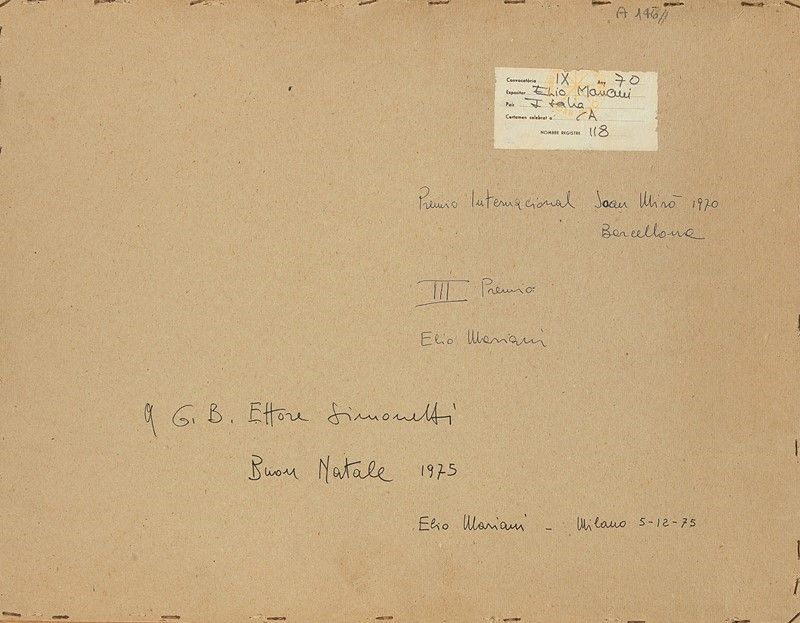 A 146/
Convocatòria IX Any 70
Expositor Elio Mariani
País Italia
Certamen celebrat a CA
NOMBRE REGISTRE 118
Premio Internacional Joan Mirò 1970
Barcellona
III Premio
Elio Mariani
A G. B. Ettore Simonetti
Buon Natale 1975
Elio Mariani - Milano 5-12-75